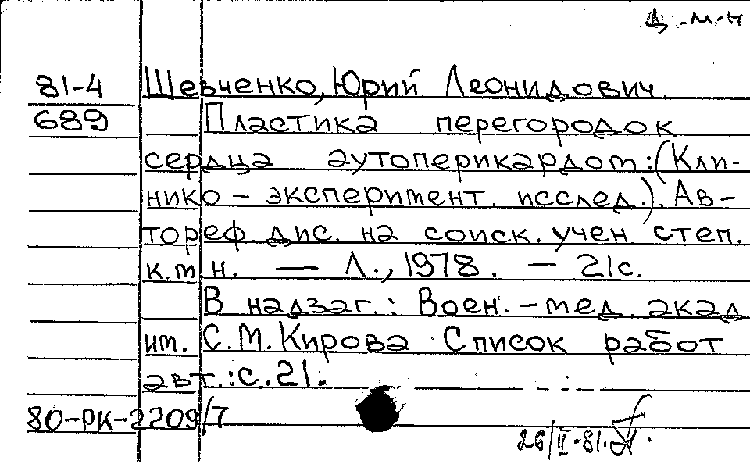 Д-м-н
81-4 Шевченко, Юрий Леонидович.
689 Пластика перегородок
сердца аутоперикардом: (Кли-
нико - эксперимент. исслед.). Ав-
тореф. дис. на соиск. учен. степ.
к.м.н. — Л., 1978. - 21с.
В надзаг.: Воен.-мед. акад
им. С.М. Кирова. Список работ
авт.: с. 21.
80-РК-2209/7
26/II-81.